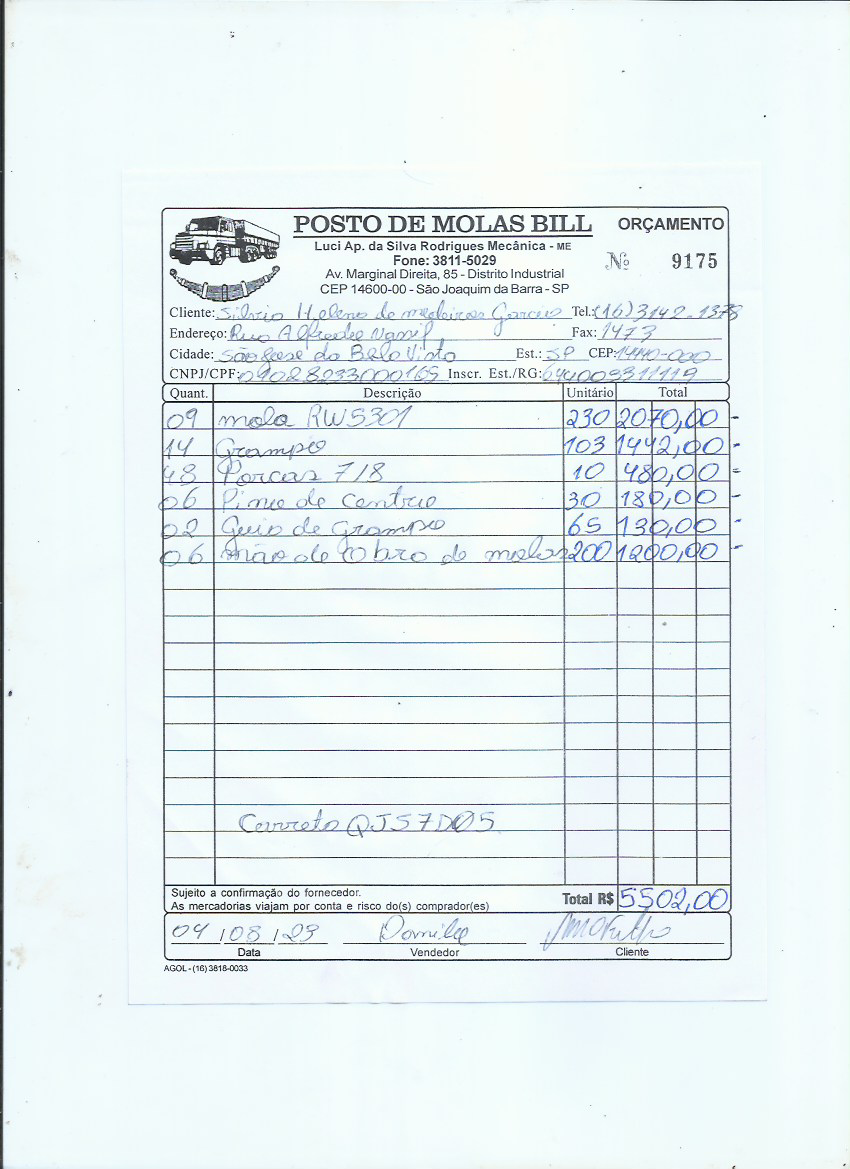 POSTO DE MOLAS BILL ORÇAMENTO
Luci Ap. da Silva Rodrigues Mecânica - ME
Fone: 3811-5029 Nº 9175
Av. Marginal Direita, 85 - Distrito Industrial
CEP 14600-00 - São Joaquim da Barra - SP
Cliente: Silvia Helena de medeiros Garcia Tel.: (16) 3142-1378
Endereço: Rua Fax: 1473
Cidade: São Jose da Bela Vista Est.: SP CEP: 14440-000
CNPJ/CPF: 09028233000165 Inscr. Est./RG:
Quant. Descrição Unitário Total
09 mola RW5301 230 2070,00 -
14 Grampo 103 1442,00 -
48 Porcas 7/8 10 480,00 -
06 Pino de Centro 30 180,00 -
02 Guia de Grampo 65 130,00 -
06 mão de Obra de molas 200 1200,00 -
Carreta QJS7D05
Sujeito a confirmação do fornecedor.
As mercadorias viajam por conta e risco do(s) comprador(es) Total R$ 5502,00
04 / 08 / 23
Data Vendedor Cliente
AGOL - (16) 3818-0033